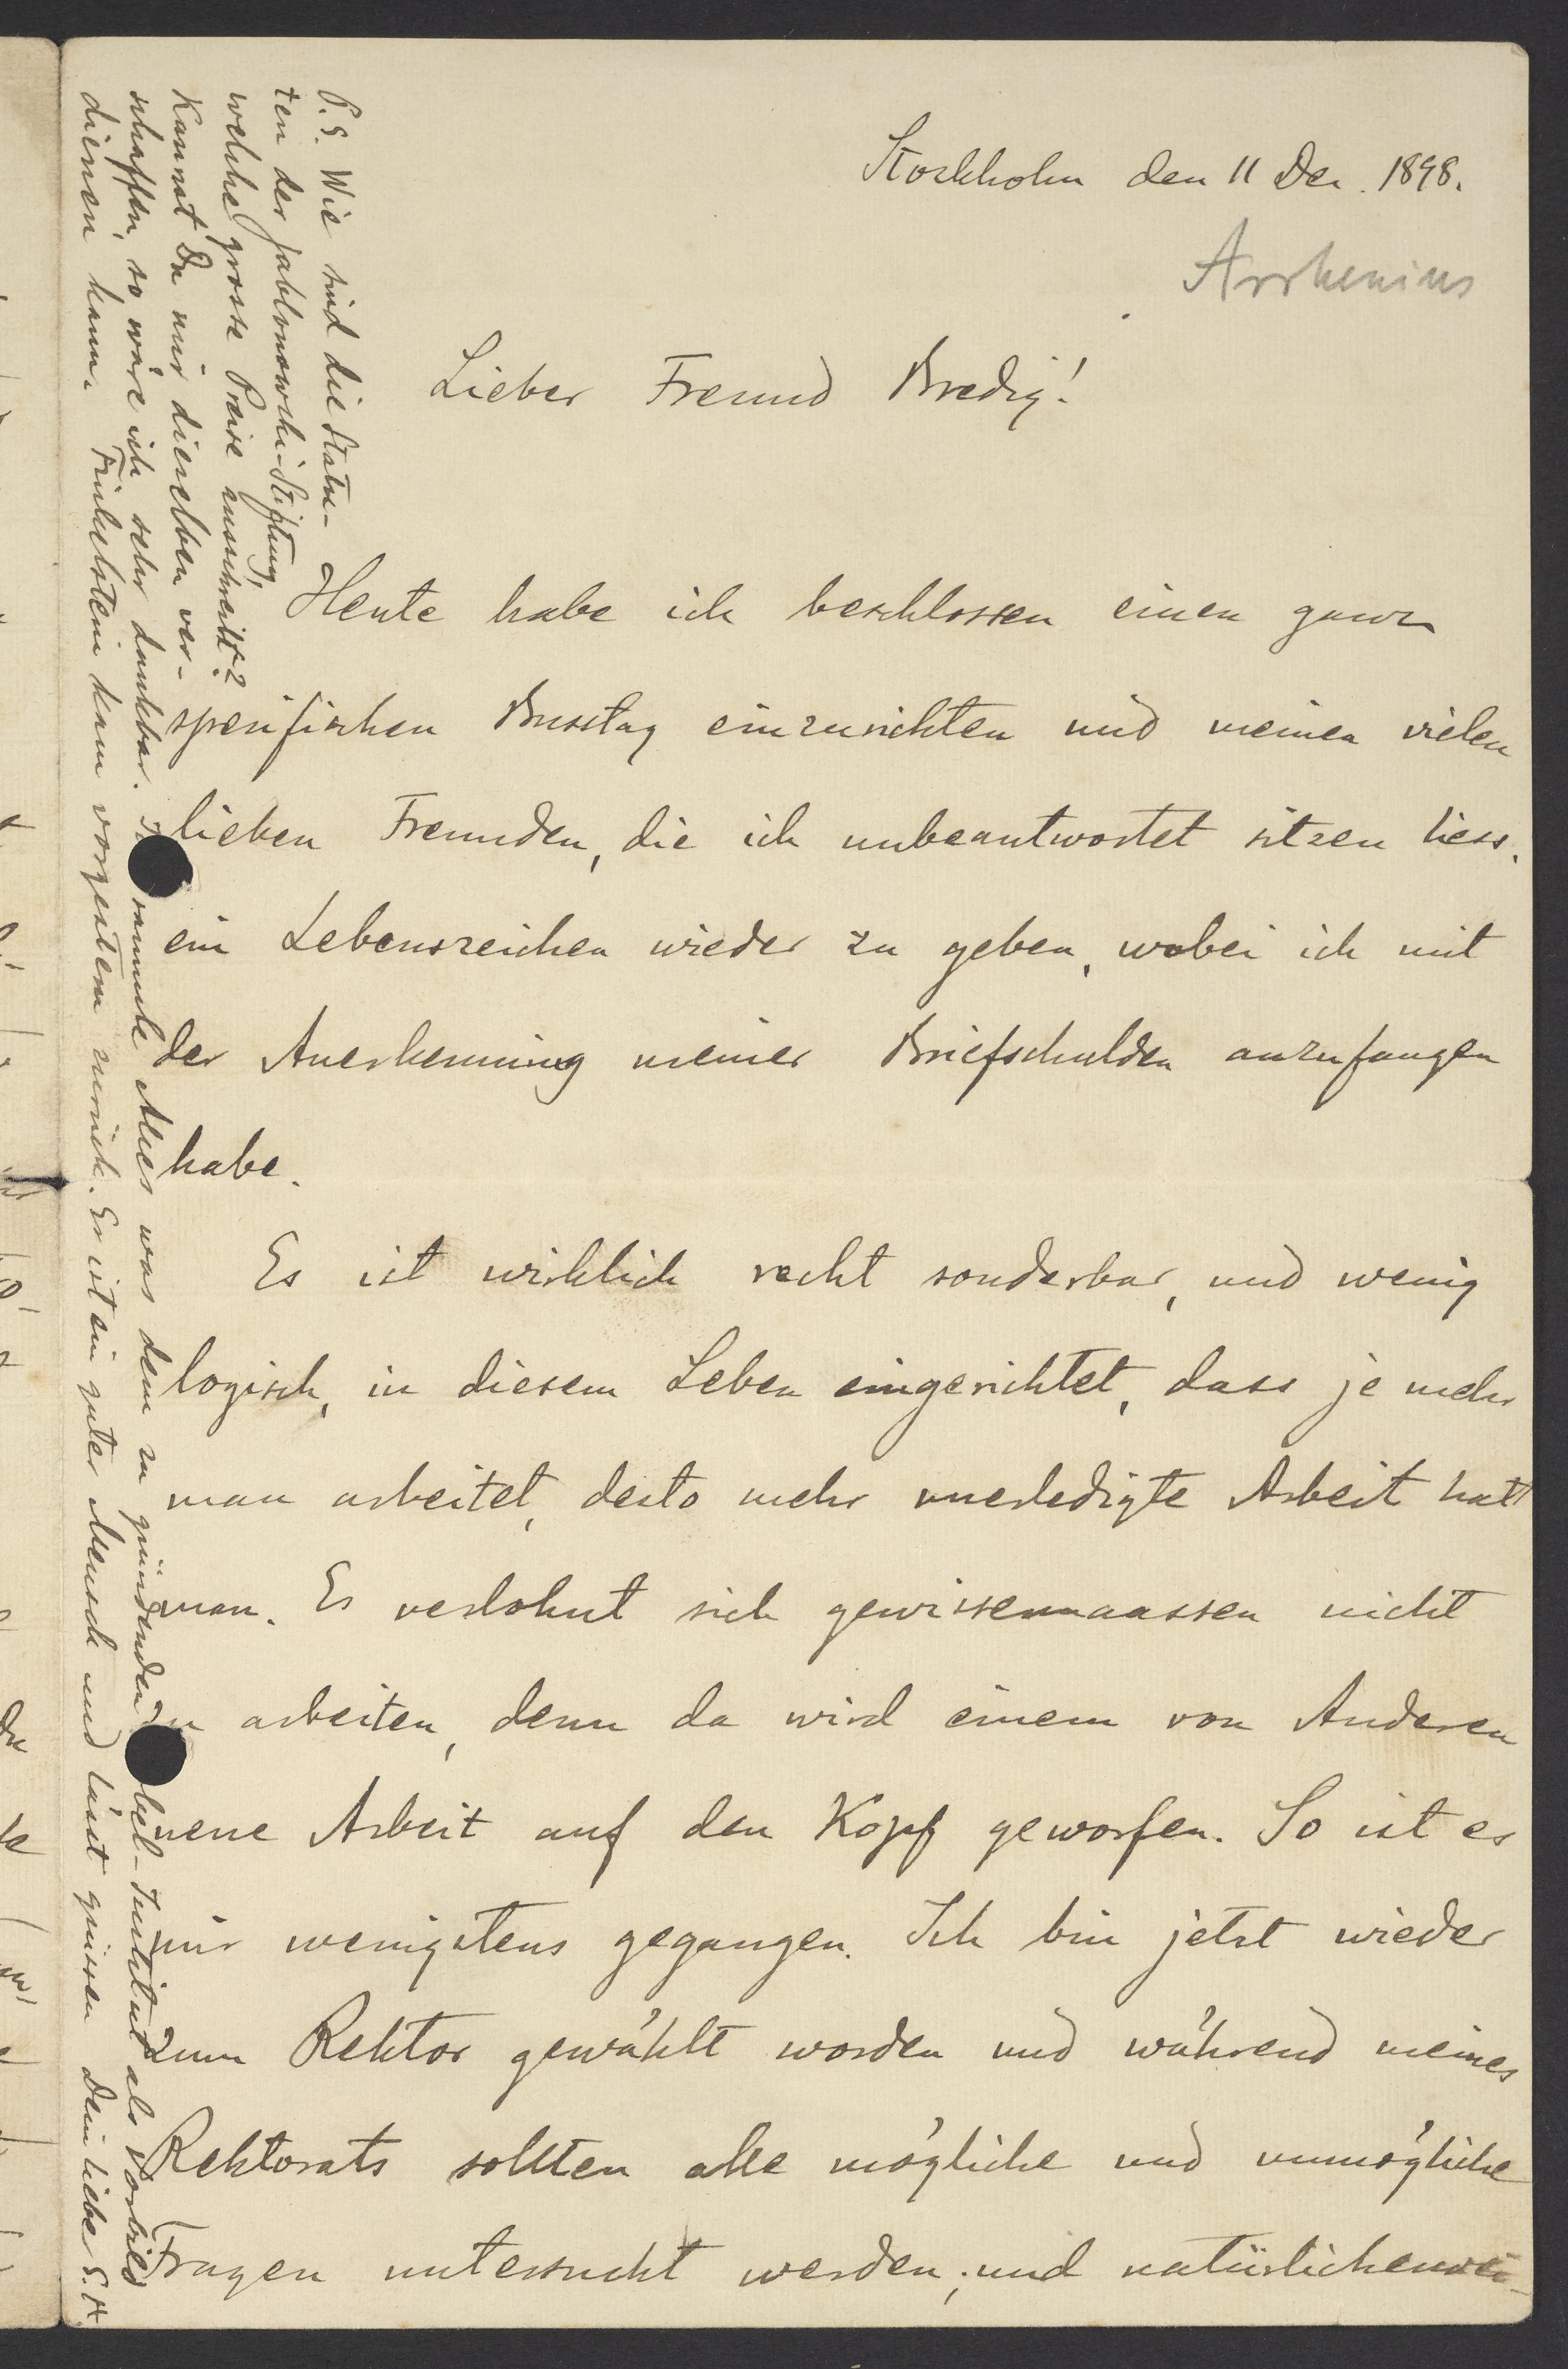 Stockholm den 11 Dec. 1898.
Arrhenius
Lieber Freund Bredig!
Heute habe ich beschlossen einen ganz
spezifischen Busstag einzurichten und meinen vielen
lieben Freunden, die ich unbeantwortet sitzen liess,
ein Lebenszeichen wieder zu geben, wobei ich mit
der Anerkennung meiner Briefschulden anzufangen
habe.
Es ist wirklich recht sonderbar, und wenig
logisch, in diesem Leben eingerichtet, dass je mehr
man arbeitet, desto mehr unerledigte Arbeit hat
man. Es verlohnt sich gewissermaassen nicht
zu arbeiten, denn da wird einem von Anderen
neue Arbeit auf den Kopf geworfen. So ist es
mir wenigstens gegangen. Ich bin jetzt wieder
zum Rektor gewählt worden und während meines
Rektorats sollten alle mögliche und unmögliche
Fragen untersucht werden, und natürlicherwei-
P.S. Wie sind die Statu-
ten der Jablonowski-Stiftung,
welche grosse Preise ausschreibt?
Kannst Du mir dieselben ver-
schaffen, so wäre ich sehr dankbar. sammle Alles was dem zu gründenden bel-Institut als Vorbild
dienen kann. Finkelstein kam vorgestern zurück. Er ist ein guter Mensch und lässt grüssen Dein lieber S. A.